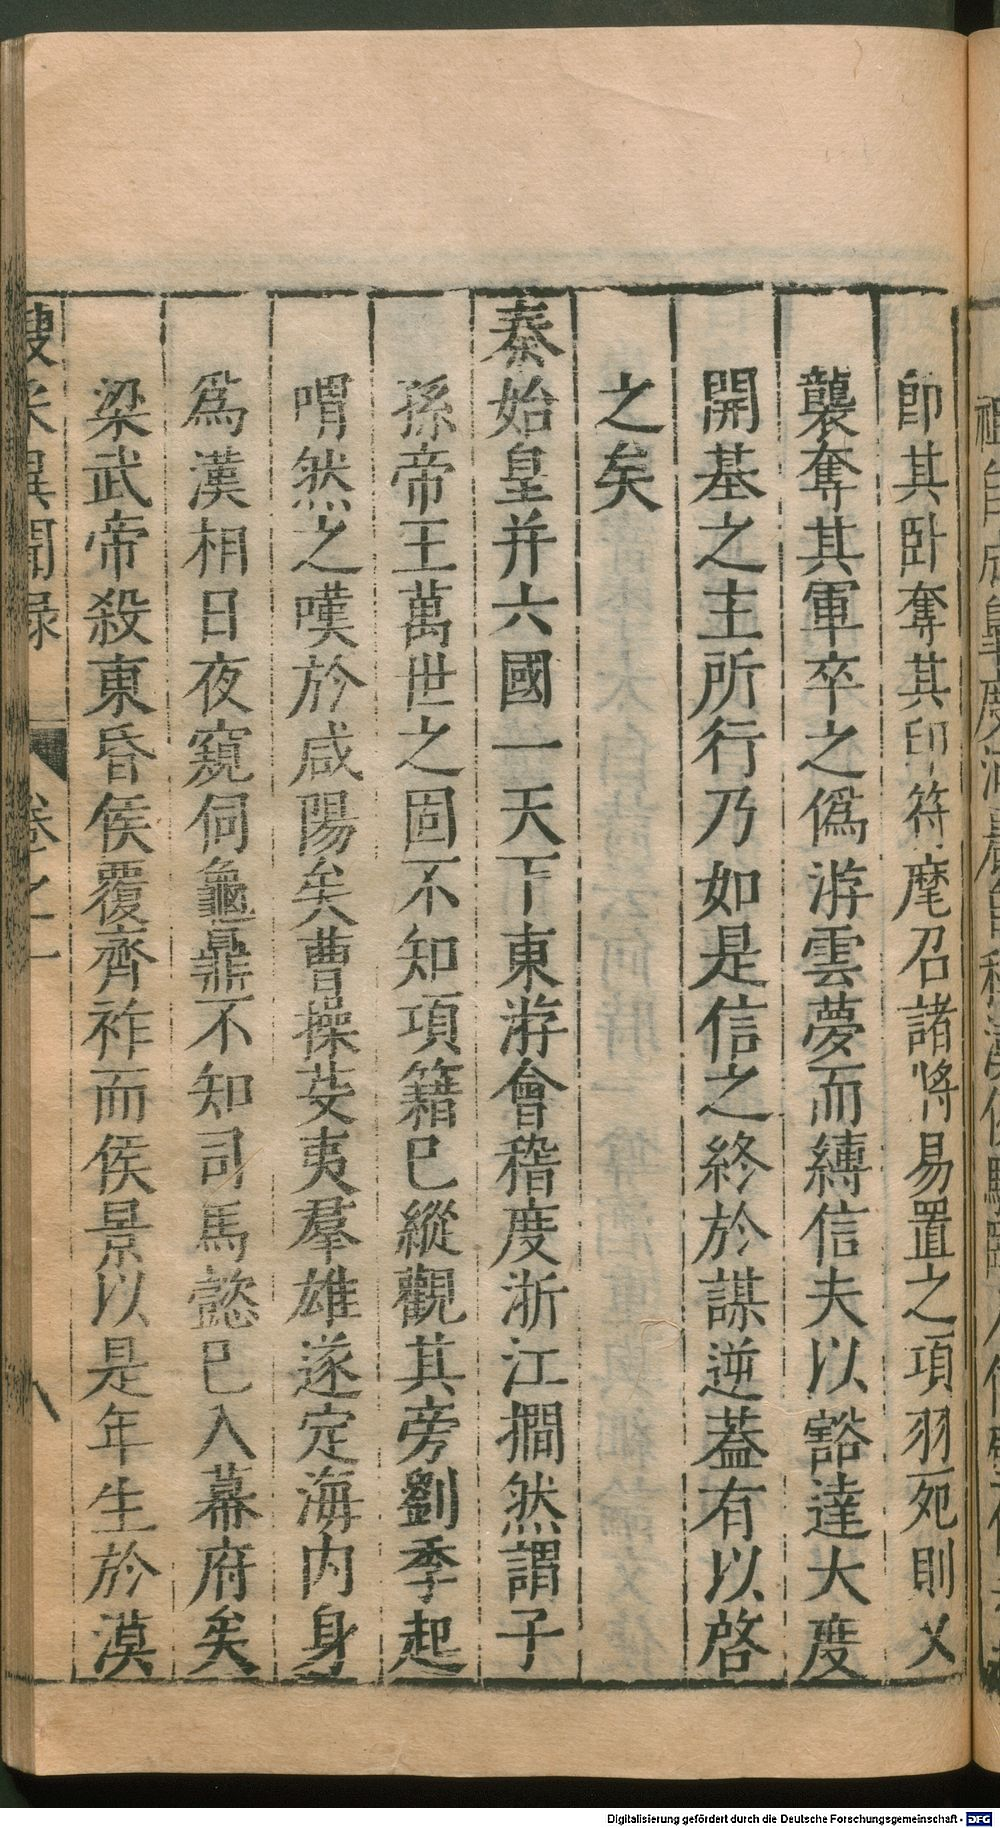 即其臥奪其印符麾召諸將易置之項羽死則又
襲奪其軍卒之僞游雲夢而縛信夫以豁達大度
開基之主所行乃如是信之終於謀逆蓋有以啓
之矣
秦始皇并六國一天下東游會稽度浙江撊然謂子
孫帝王萬世之固不知項籍已縱觀其旁劉季起
喟然之嘆於咸陽矣曹操芟夷羣雄遂定海内身
爲漢相日夜窺伺龜鼎不知司馬懿已入幕府矣
梁武帝殺東昏侯覆齊祚而侯景以是年生於漠
搜采異聞錄 卷之二 八
Digitalisierung gefördert durch die Deutsche Forschungsgemeinschaft - DFG